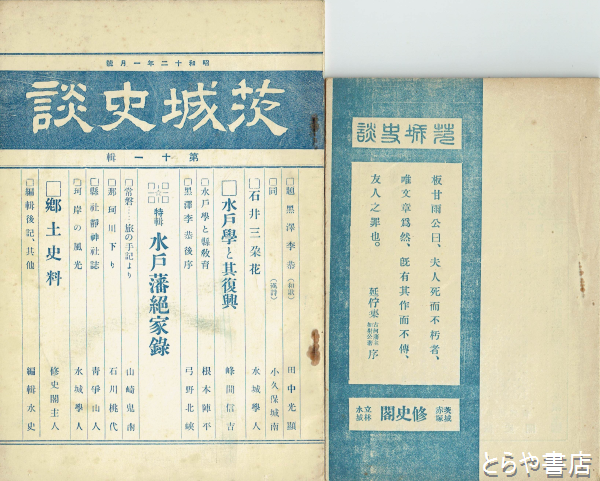 昭和十二年一月號
茨城史談
第十一輯
□題黑澤李恭(和歌) 田中光顯
□同(漢詩) 小久保城南
□石井三朶花 水城學人
□水戶學と其復興 峰間信吉
□水戶學と縣敎育 根本陣平
□黑澤李恭後序 弓野北峽
特輯 水戶藩絕家錄
□常磐…旅の手記より 山崎鬼南
□那珂川下り 石川桃代
□縣社靜神社誌 靑爭山人
□河岸の風光 水城學人
□鄕土史料 修史閣主人
□編輯後記、其他 編輯水史
茨城史談
板甘雨公曰、夫人死而不朽者、
唯文章爲然、旣有其作而不傳、
友人之罪也。
序
茨城赤塚 修史閣 立林水城
とらや書店